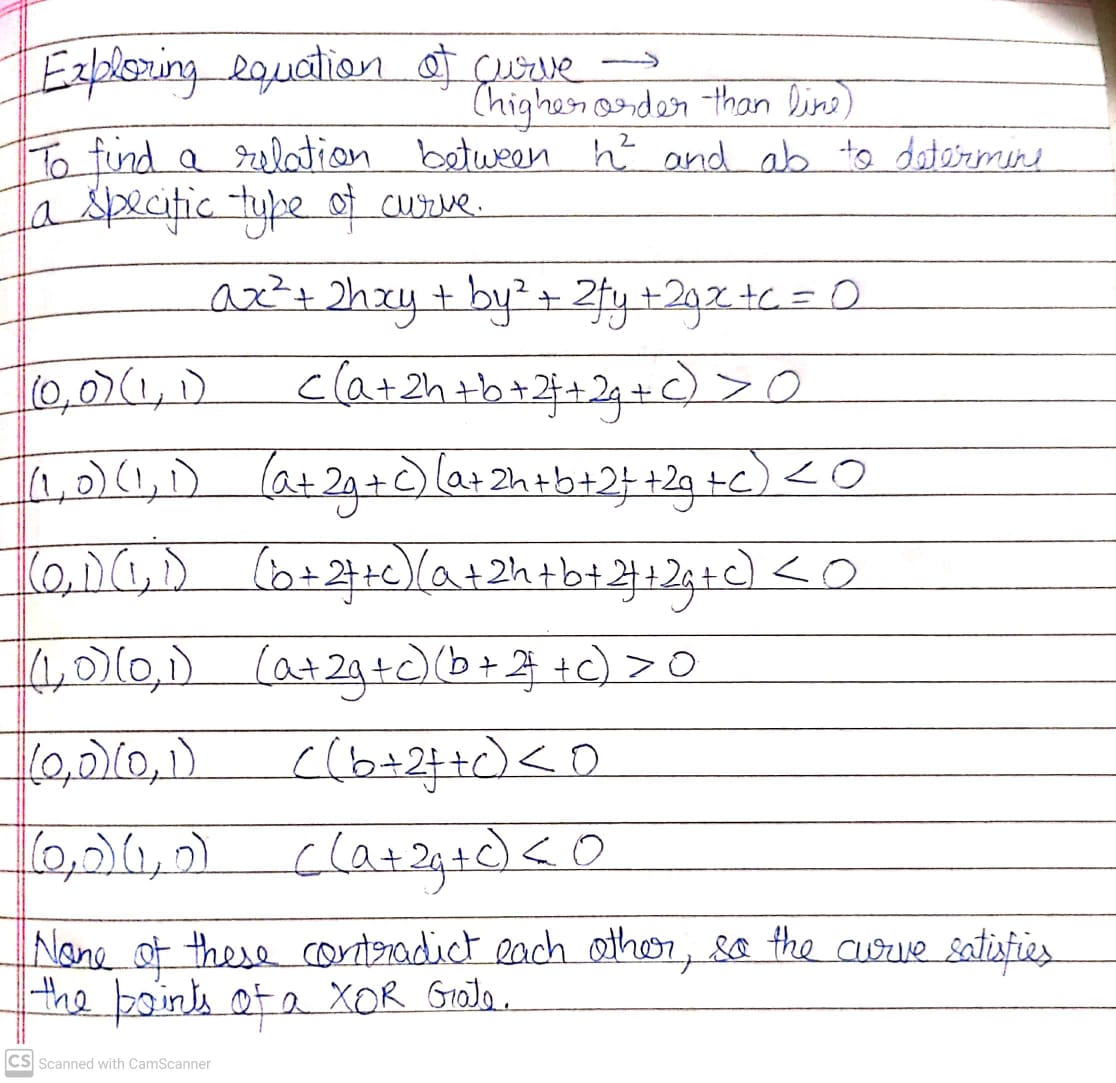 Exploring equation of curve →
(higher order than line)
To find a relation between h² and ab to determine
a specific type of curve.
ax² + 2hxy + by² + 2fy + 2gx + c = 0
(0,0)(1,1) c(a+2h+b+2f+2g+c) > 0
(1,0)(1,1) (a+2g+c)(a+2h+b+2f+2g+c) < 0
(0,1)(1,1) (b+2f+c)(a+2h+b+2f+2g+c) < 0
(1,0)(0,1) (a+2g+c)(b+2f+c) > 0
(0,0)(0,1) c(b+2f+c) < 0
(0,0)(1,0) c(a+2g+c) < 0
None of these contradict each other, so the curve satisfies
the points of a XOR Gate.
CS Scanned with CamScanner